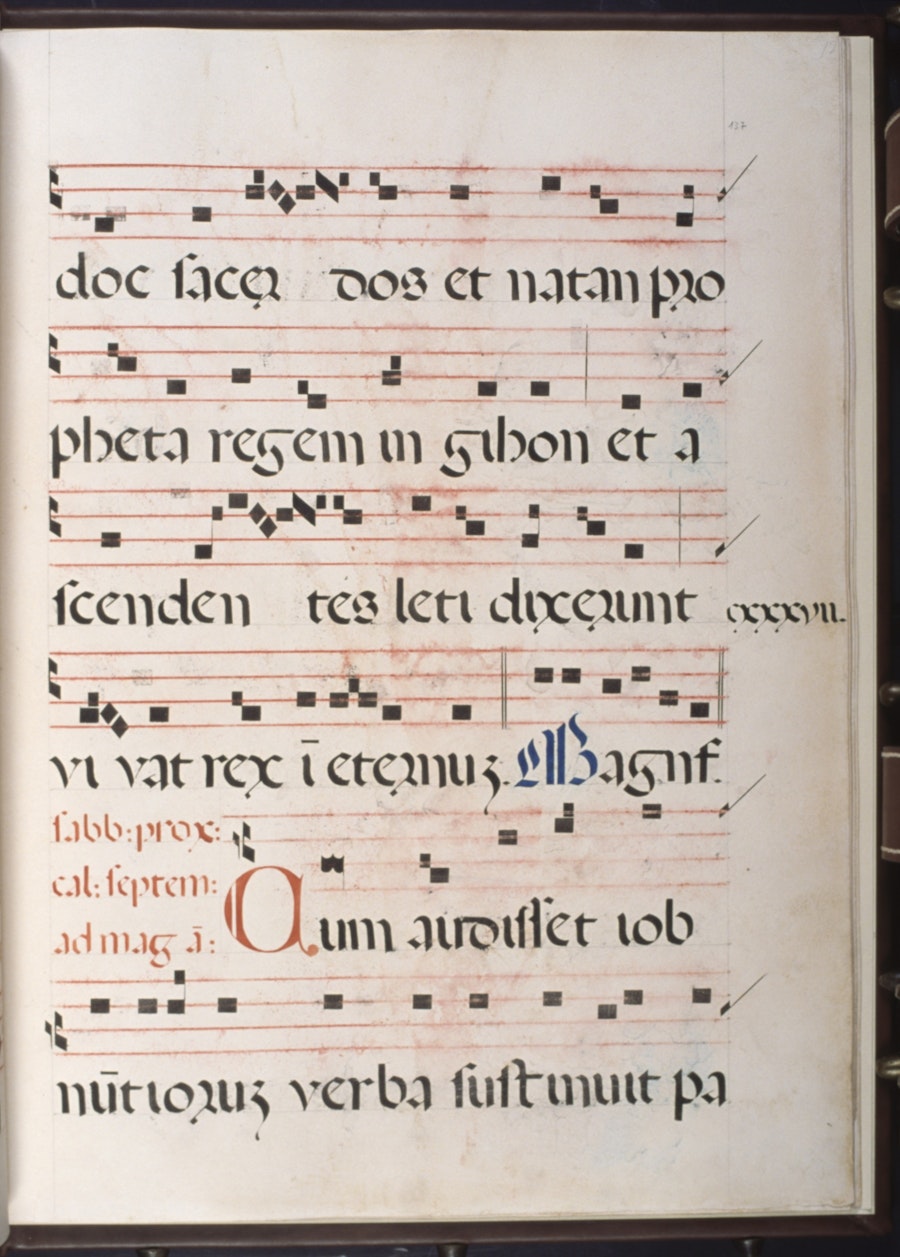 137
doc sacer dos et natan pro
pheta regem in gihon et a
scenden tes leti dixerunt cxxxvii.
vi vat rex ī eternuʒ. Magnf.
sabb: prox:
cal: septem:
ad mag ā:
Cum audisset iob
nūtioruʒ verba sustinuit pa